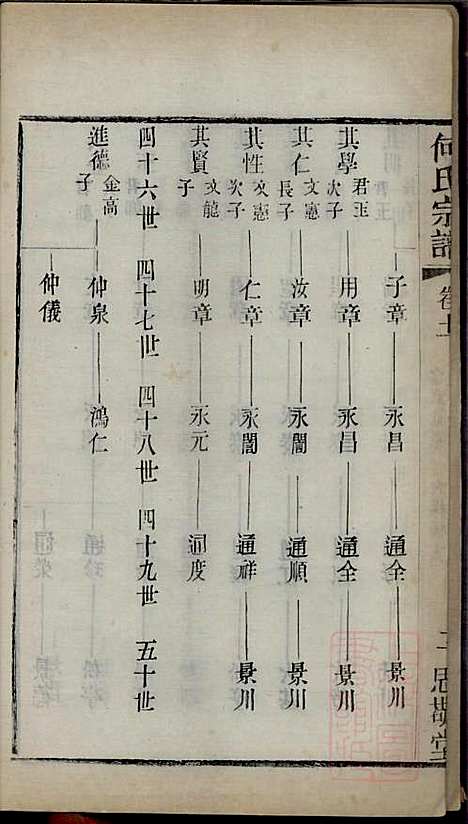 何氏宗譜 卷十一 二 思敬堂
子章 永昌 通全 景川
其學 君玉次子 用章 永昌 通全 景川
其仁 文憲長子 汝章 永闇 通順 景川
其性 文憲次子 仁章 永闇 通祥 景川
其賢 文龍子 明章 永元 通度
四十六世 四十七世 四十八世 四十九世 五十世
進德 金高子 仲泉 鴻仁
仲儀